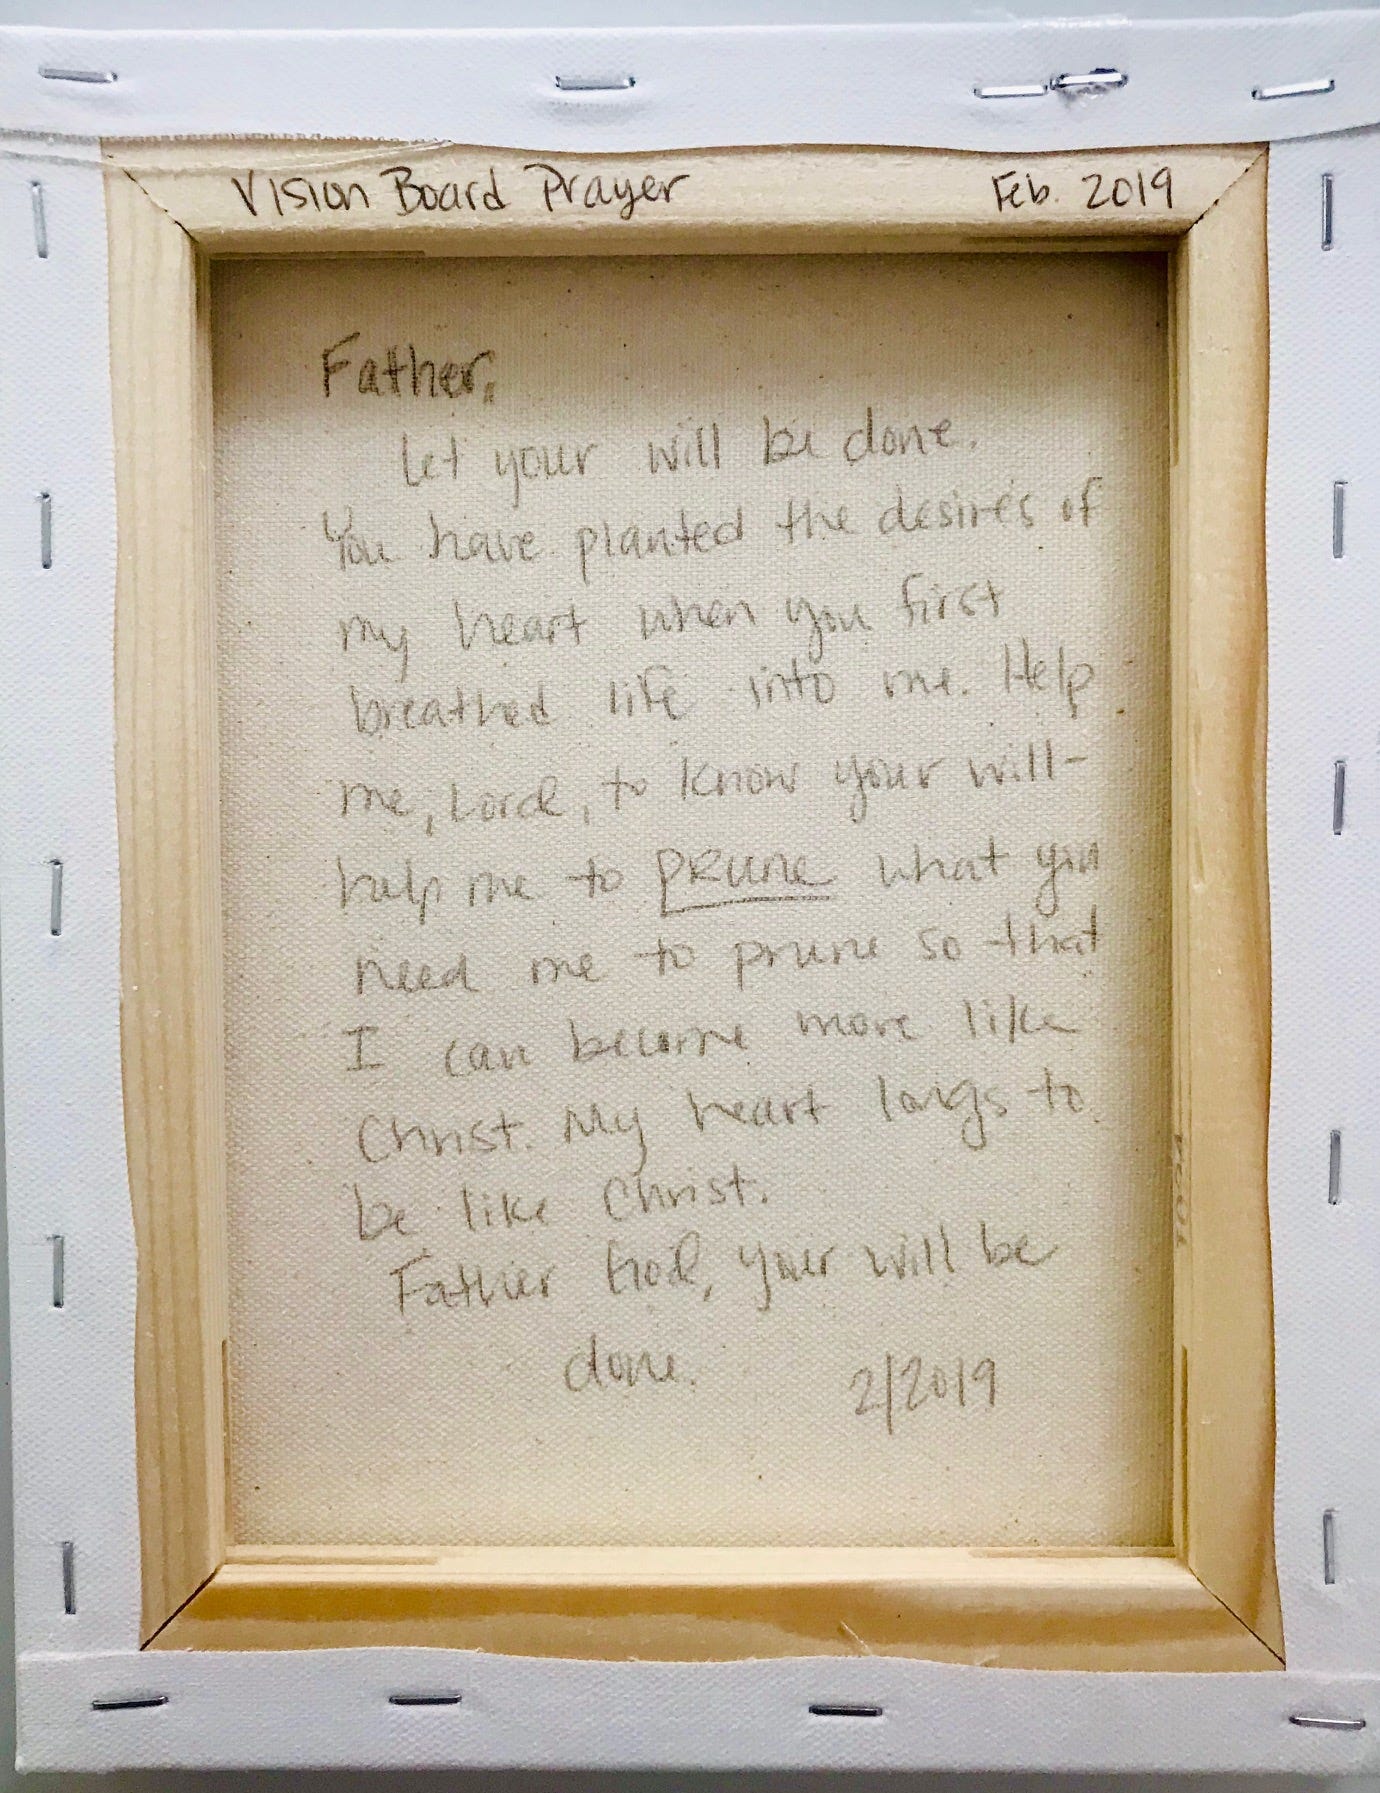 Vision Board Prayer Feb. 2019
Father,
Let your will be done.
You have planted the desires of
my heart when you first
breathed life into me. Help
me, Lord, to know your will-
help me to PRUNE what you
need me to prune so that
I can become more like
Christ. My heart longs to
be like Christ.
Father God, your will be
done. 2/2019